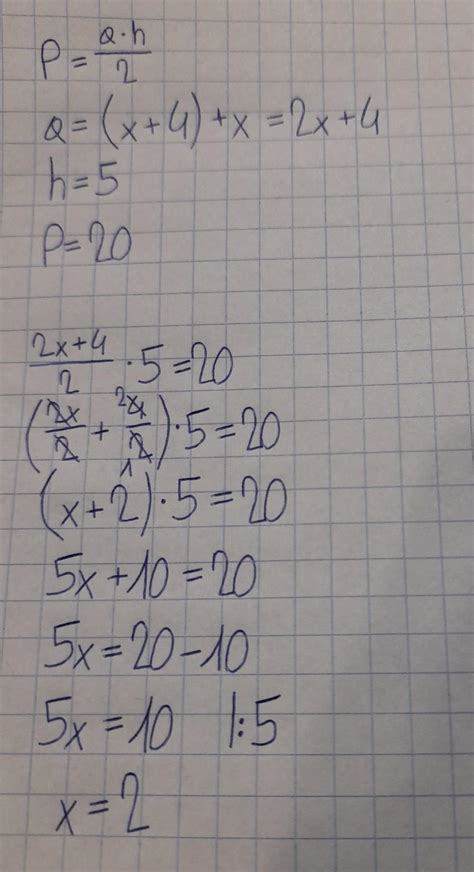 P = a·h/2
a = (x+4)+x = 2x+4
h = 5
P = 20
2x+4/2 · 5 = 20
(2x/2 + 4/2) · 5 = 20
(x+2) · 5 = 20
5x+10 = 20
5x = 20-10
5x = 10 |:5
x = 2